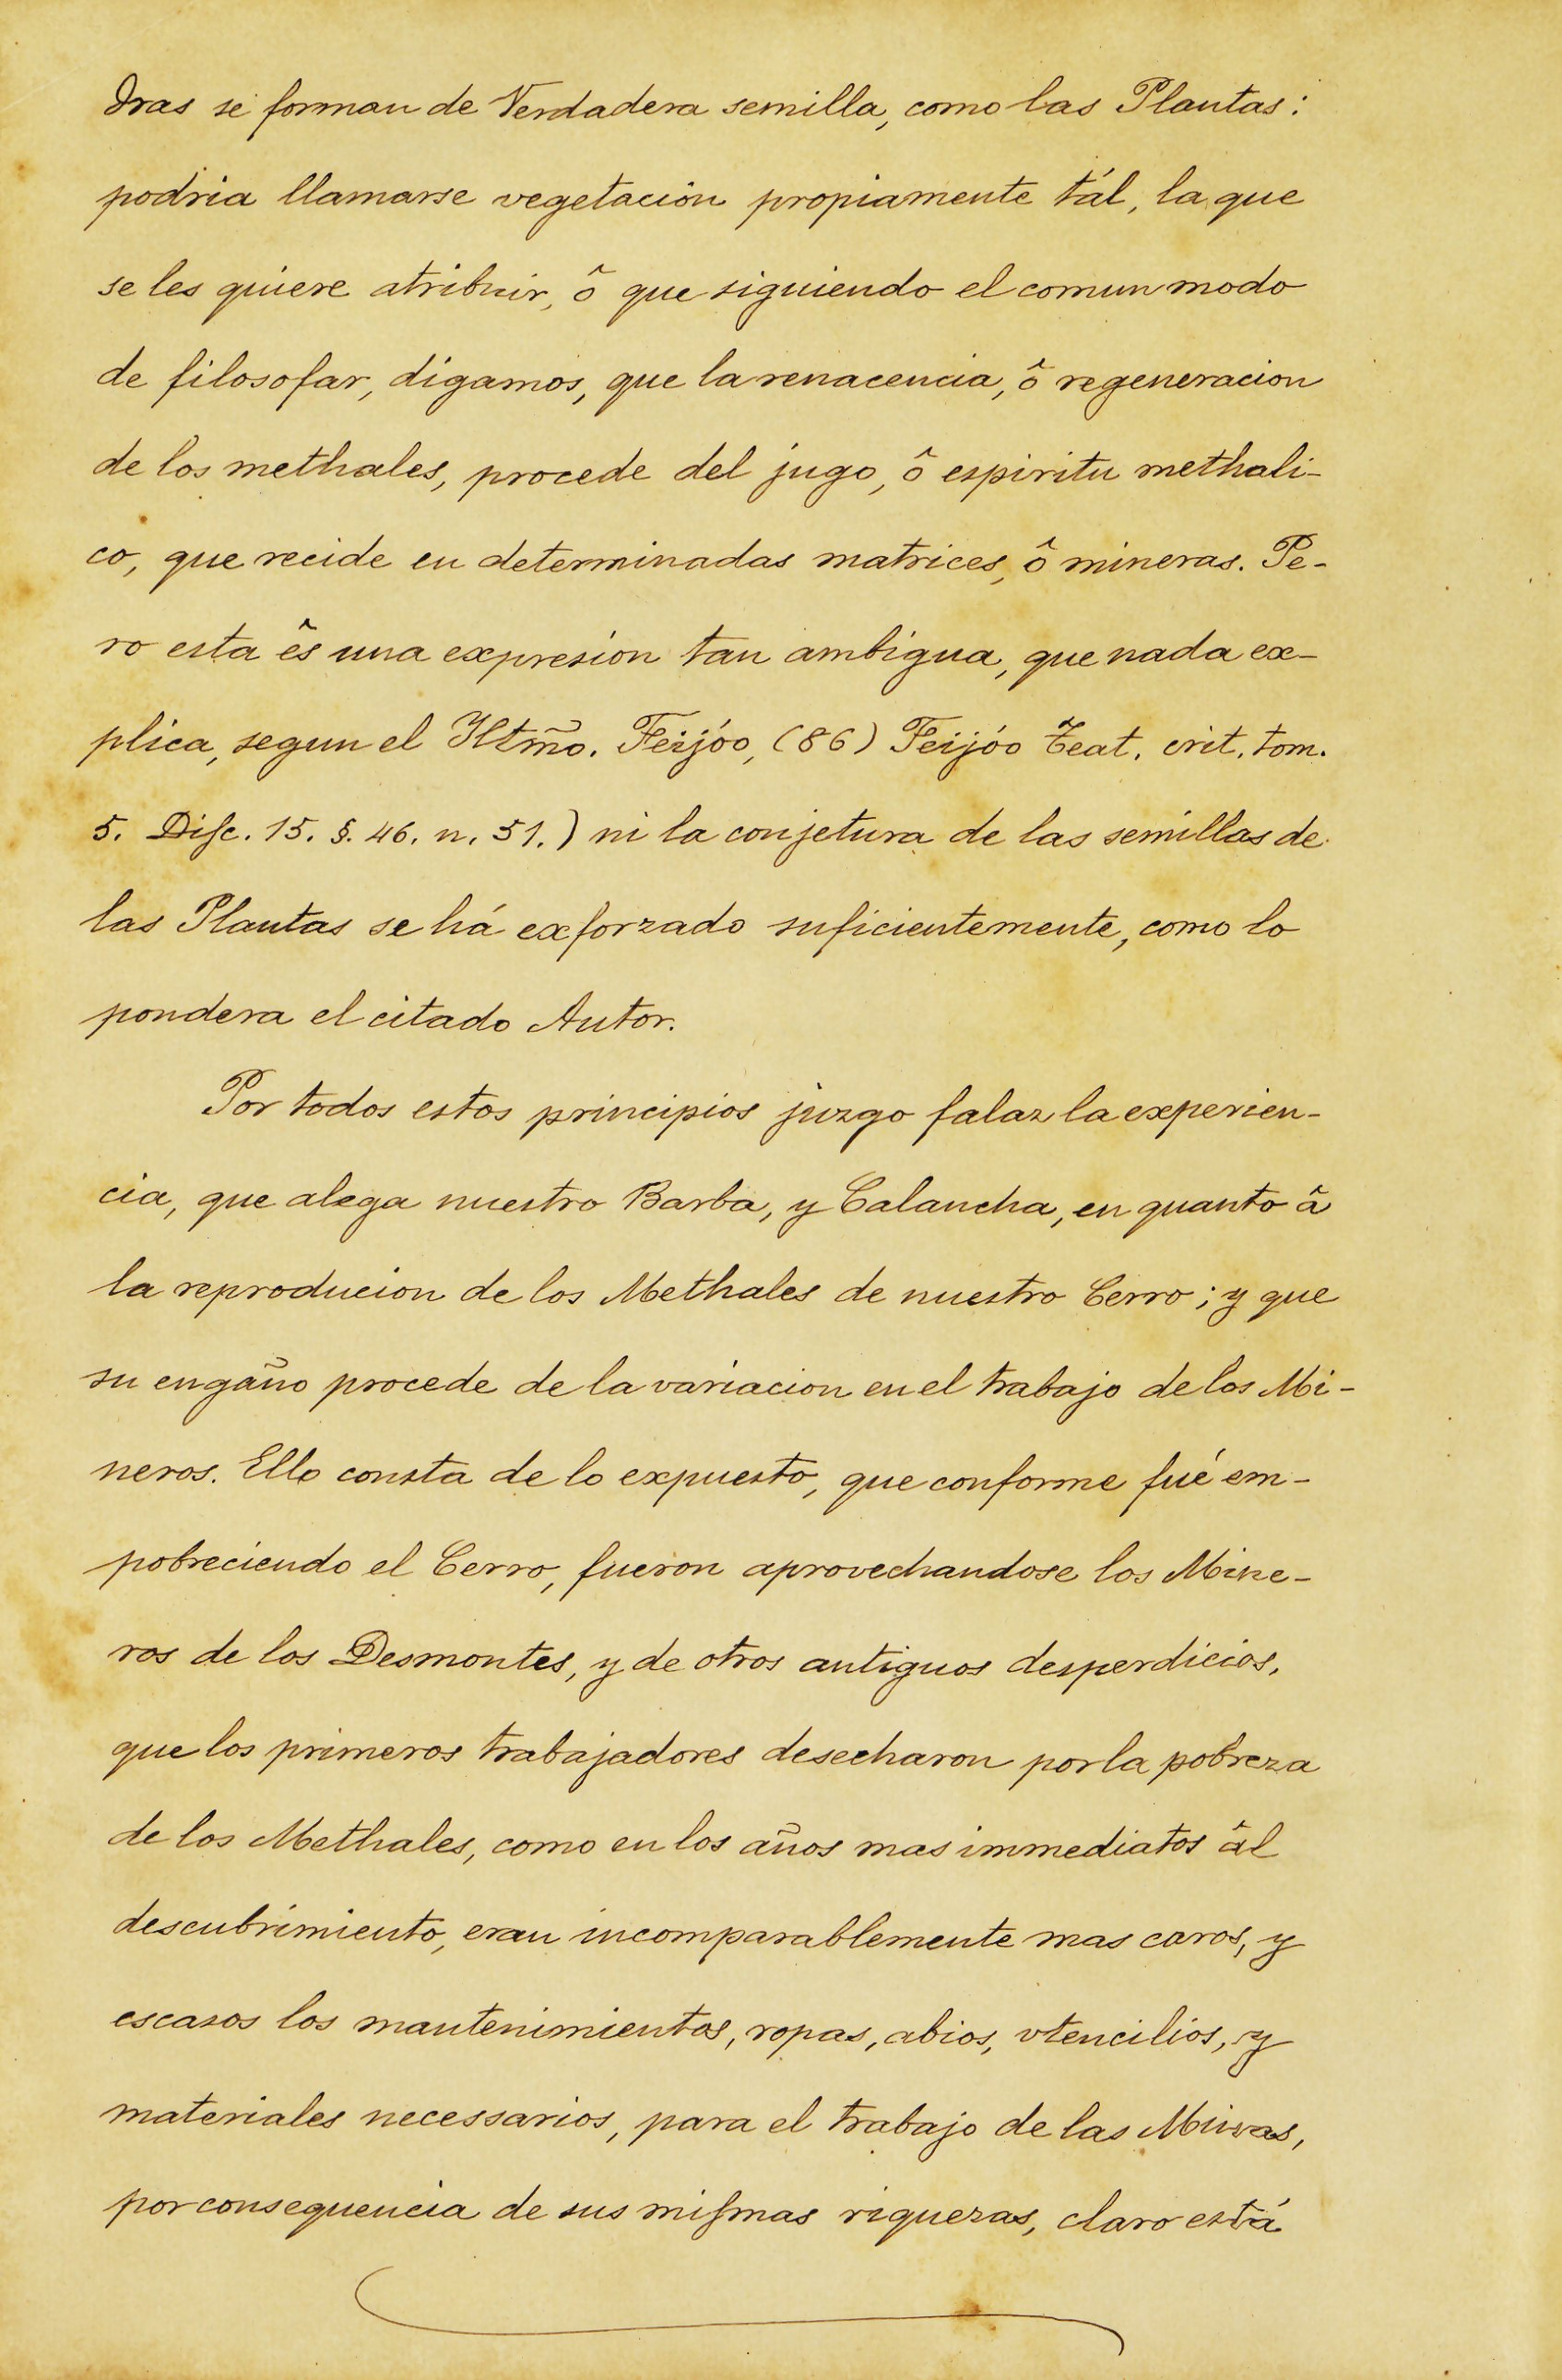 dras se forman de Verdadera semilla, como las Plantas:
podria llamarse vegetaciôn propiamente tál, la que
se les quiere atribuir, ô que siguiendo el comun modo
de filosofar, digamos, que la renacencia, ô regeneracion
de los methales, procede del jugo, ô espiritu methali-
co, que recide en determinadas matrices, ô mineras. Pe-
ro esta ês una expresion tan ambigua, que nada ex-
plica, segun el Iltm̃o. Feijóo, (86) Feijóo Teat. crit. tom.
5. Disc. 15. §. 46. n. 51.) ni la conjetura de las semillas de
las Plantas se há exforzado suficientemente, como lo
pondera el citado Autor.
Por todos estos principios juzgo falaz la experien-
cia, que alega nuestro Barba, y Calancha, en quanto â
la reproducion de los Methales de nuestro Cerro; y que
su engaño procede de la variacion en el trabajo de los Mi-
neros. Ello consta de lo expuesto, que conforme fué em-
pobreciendo el Cerro, fueron aprovechandose los Mine-
ros de los Desmontes, y de otros antiguos desperdicios,
que los primeros trabajadores desecharon por la pobreza
de los Methales, como en los años mas immediatos âl
descubrimiento, eran incomparablemente mas caros, y
escasos los mantenimientos, ropas, abios, vtencilios, y
materiales necessarios, para el trabajo de las Minas,
por consequencia de sus miſmas riquezas, claro está